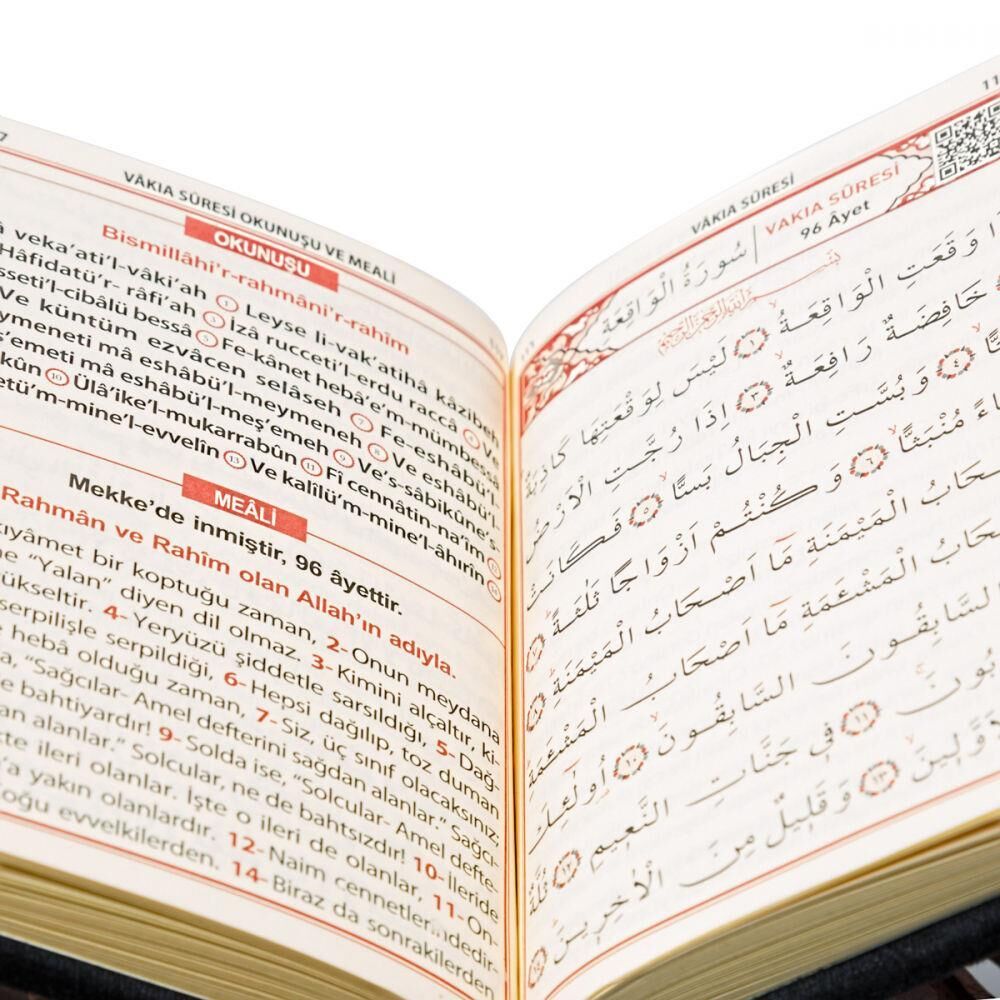 VÂKIA SÛRESİ OKUNUŞU VE MEALİ
OKUNUŞU
Bismillâhi'r-rahmâni'r-rahîm
veka'ati'l-vâki'ah 1 Leyse li-vak'atihâ kâzibeh
Hâfidatü'r- râfi'ah 3 İzâ rucceti'l-erdu raccâ 4 Ve
sseti'l-cibâlü bessâ 5 Fe-kânet hebâ'e'm-mümbessâ
Ve küntüm ezvâcen selâseh 7 Fe-eshâbü'l-
ymeneti mâ eshâbü'l-meymeneh 8 Ve eshâbü'l-
ş'emeti mâ eshâbü'l-meş'emeh 9 Ve's-sâbikûne's-
kûn 10 Ülâ'ike'l-mukarrabûn 11 Fî cennâtin-na'îm 12
etü'm-mine'l-evvelîn 13 Ve kalîlü'm-mine'l-âhırîn 14
MEÂLİ
Mekke'de inmiştir, 96 âyettir.
Rahmân ve Rahîm olan Allah'ın adıyla.
kıyâmet bir koptuğu zaman, 2- Onun meydana
ne "Yalan" diyen dil olmaz. 3- Kimini alçaltır, ki-
ükseltir. 4- Yeryüzü şiddetle sarsıldığı, 5- Dağ-
serpilişle serpildiği, 6- Hepsi dağılıp, toz duman
heba olduğu zaman, 7- Siz, üç sınıf olacaksınız;
a, "Sağcılar- Amel defterini sağdan alanlar." Sağcı-
e bahtiyardır! 9- Solda ise, "Solcular- Amel defte-
an alanlar." Solcular, ne de bahtsızdır! 10- İleride
te ileri olanlar. İşte o ileri de olanlar, 11- On-
'a yakın olanlardır. 12- Naim cennetlerindedir-
oğu evvelkilerden. 14- Biraz da sonrakilerden
VÂKIA SÛRESİ
سُورَةُ الْوَاقِعَةِ
VAKIA SÛRESİ
96 Âyet
وَقَعَتِ الْوَاقِعَةُ ﴿١﴾ لَيْسَ لِوَقْعَتِهَا كَاذِبَةٌ
خَافِضَةٌ رَافِعَةٌ ﴿٣﴾ اِذَا رُجَّتِ الْاَرْضُ
﴿٤﴾ وَبُسَّتِ الْجِبَالُ بَسًّا ﴿٥﴾ فَكَانَتْ
مُنْبَثًّا ﴿٦﴾ وَكُنْتُمْ اَزْوَاجًا ثَلٰثَةً ﴿٧﴾
الْمَيْمَنَةِ مَٓا اَصْحَابُ الْمَيْمَنَةِ ﴿٨﴾
الْمَشْـَٔمَةِ مَٓا اَصْحَابُ الْمَشْـَٔمَةِ
السَّابِقُونَ السَّابِقُونَ ﴿١٠﴾ اُو۬لٰٓئِكَ
﴿١١﴾ فِي جَنَّاتِ النَّعِيمِ ﴿١٢﴾ ثُلَّةٌ
﴿١٣﴾ وَقَلِيلٌ مِنَ الْاٰخِرِينَ ﴿١٤﴾